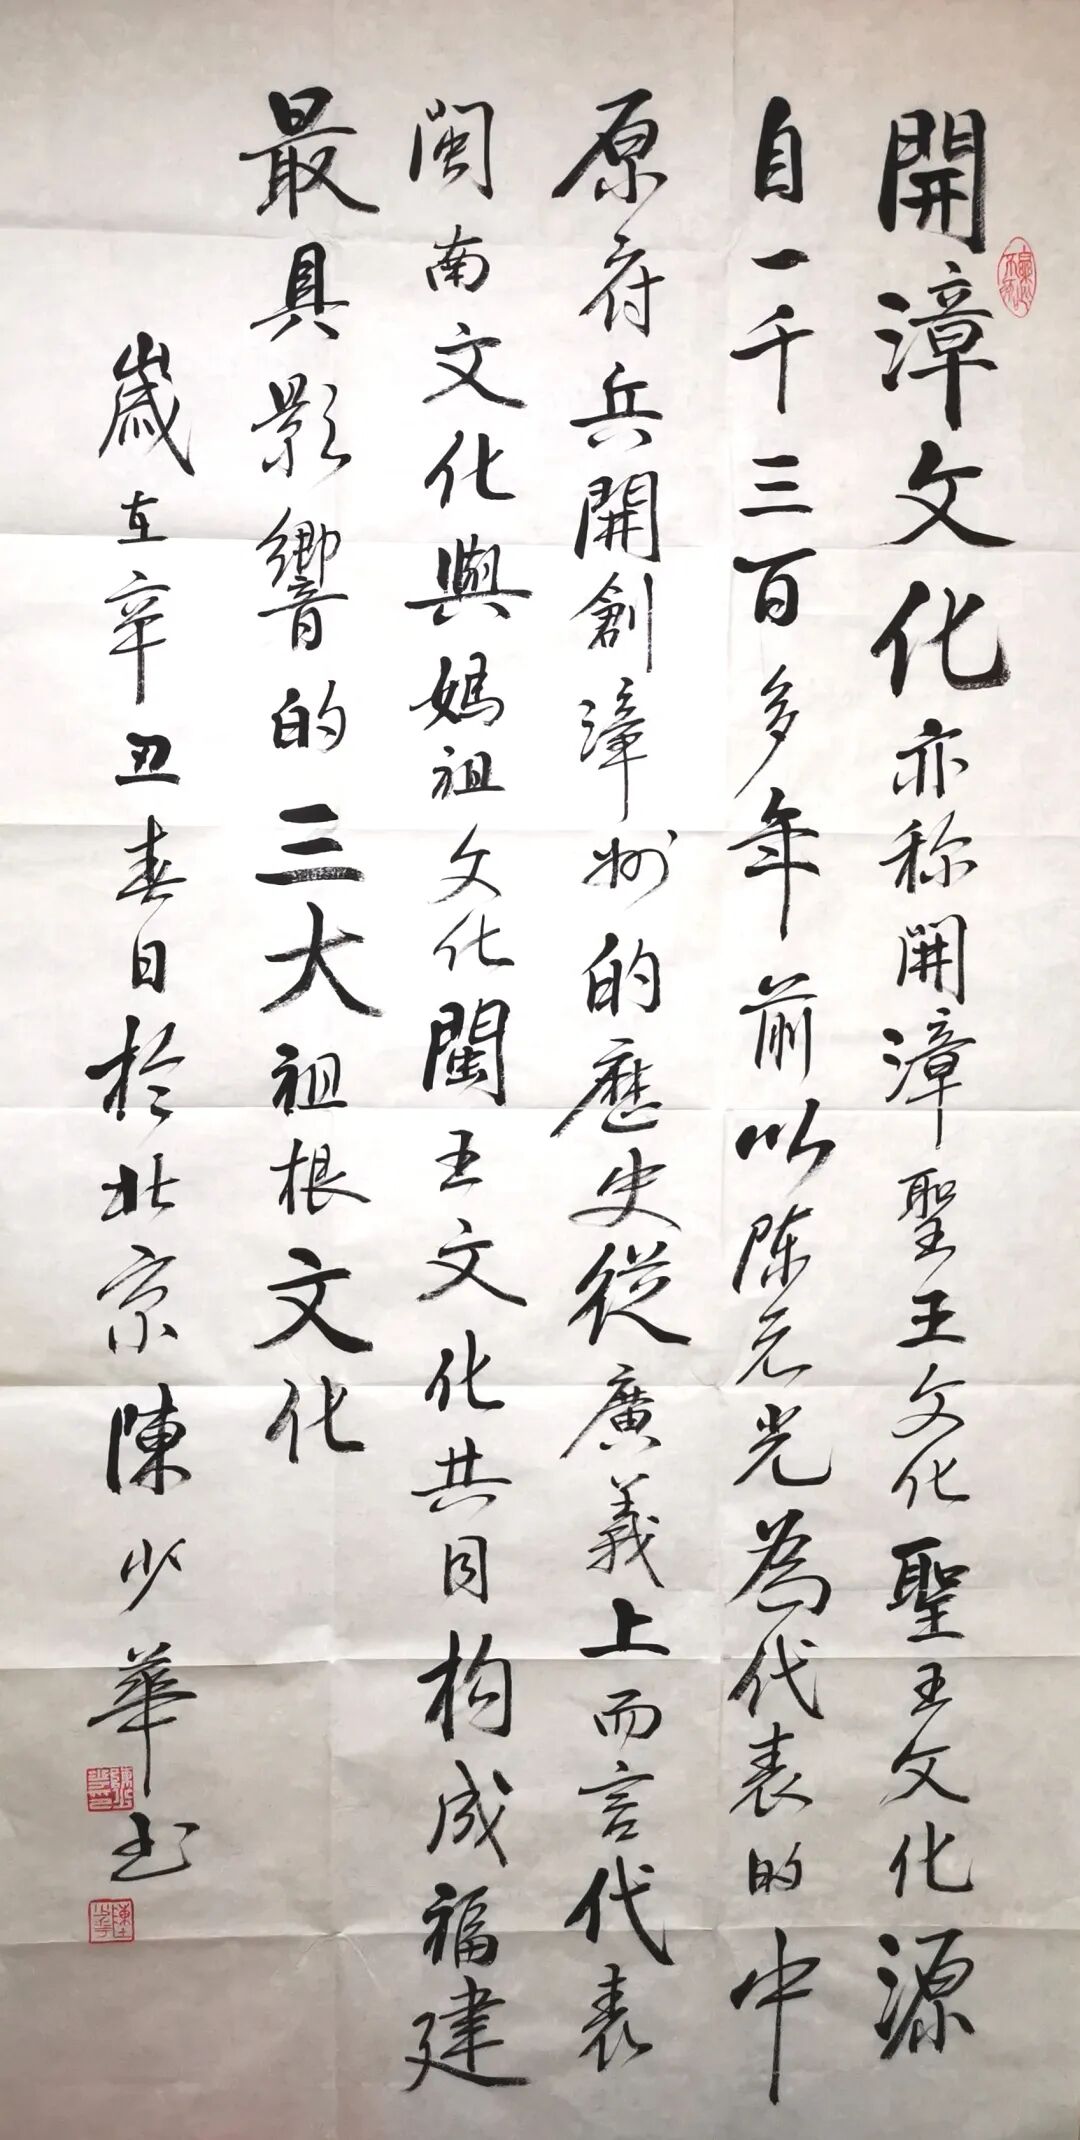 開漳文化亦称開漳聖王文化聖王文化源
自一千三百多年前以陈元光為代表的中
原府兵開創漳州的歷史從廣義上而言代表
閩南文化與媽祖文化閩王文化共同构成福建
最具影響的三大祖根文化
歲在辛丑春日於北京陳少華书